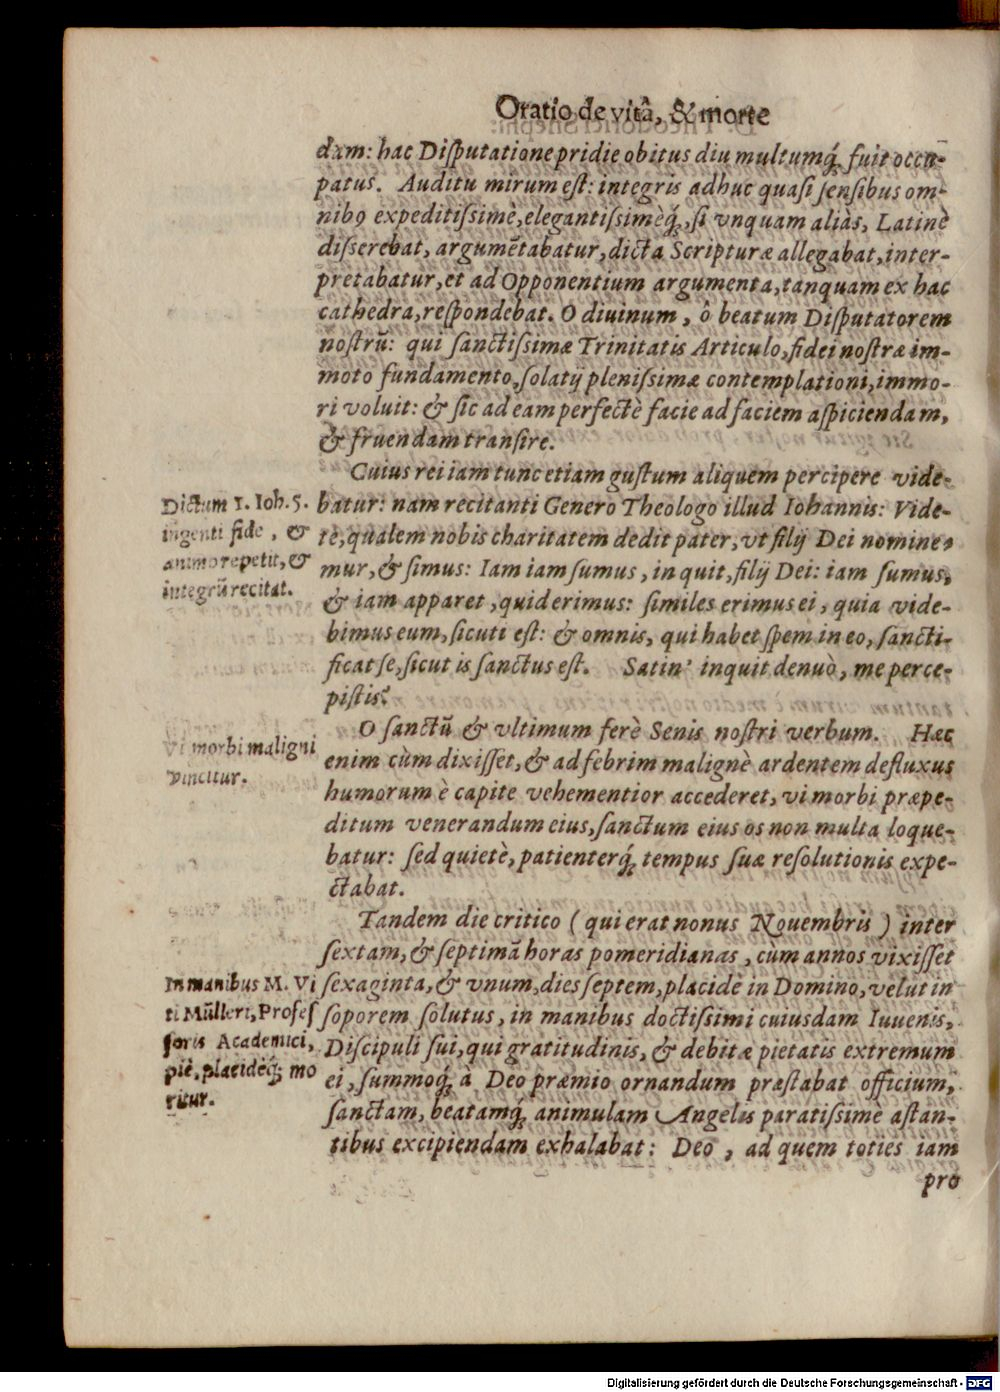 Oratio de vitâ, & morte
dam: hac Diſputatione pridie obitus diu multumq́; fuit occu-
patus. Auditu mirum eſt: integris adhuc quaſi ſenſibus om-
nibꝰ expeditiſsimè, elegantiſsimèq́;, ſi vnquam aliàs, Latinè
diſſerebat, argumētabatur, dicta Scripturæ allegabat, inter-
pretabatur, et ad Opponentium argumenta, tanquam ex hac
cathedra, reſpondebat. O diuinum, ô beatum Diſputatorem
noſtrū: qui ſanctiſsimæ Trinitatis Articulo, fidei noſtræ im-
moto fundamento, ſolatij pleniſsimæ contemplationi, immo-
ri voluit: & ſic ad eam perfectè facie ad faciem aſpiciendam,
& fruendam tranſire.
Cuius rei iam tunc etiam guſtum aliquem percipere vide-
batur: nam recitanti Genero Theologo illud Iohannis: Vide-
te, qualem nobis charitatem dedit pater, vt filij Dei nomine-
mur, & ſimus: Iam iam ſumus, inquit, filij Dei: iam ſumus,
& iam apparet, quid erimus: ſimiles erimus ei, quia vide-
bimus eum, ſicuti eſt: & omnis, qui habet ſpem in eo, ſancti-
ficat ſe, ſicut is ſanctus eſt. Satin' inquit denuò, me perce-
piſtis?
Dictum 1. Ioh. 5.
ingenti fide, &
animo repetit, &
integrū recitat.
O ſanctū & vltimum ferè Senis noſtri verbum. Hæc
enim cùm dixiſſet, & ad febrim malignè ardentem defluxus
humorum è capite vehementior accederet, vi morbi præpe-
ditum venerandum eius, ſanctum eius os non multa loque-
batur: ſed quietè, patienterq́; tempus ſuæ reſolutionis expe-
ctabat.
Vi morbi maligni
vincitur.
Tandem die critico (qui erat nonus Nouembris) inter
ſextam, & ſeptimā horas pomeridianas, cùm annos vixiſſet
ſexaginta, & vnum, dies ſeptem, placidè in Domino, velut in
ſoporem ſolutus, in manibus doctiſsimi cuiusdam Iuuenis,
Diſcipuli ſui, qui gratitudinis, & debitæ pietatis extremum
ei, ſummoq́; à Deo præmio ornandum præſtabat officium,
ſanctam, beatamq́; animulam Angelis paratiſsimè aſtan-
tibus excipiendam exhalabat: Deo, ad quem toties iam
In manibus M. Vi
ti Mülleri, Profeſ
ſoris Academici,
piè, placidèq́; mo
ritur.
pro
Digitalisierung gefördert durch die Deutsche Forschungsgemeinschaft - DFG